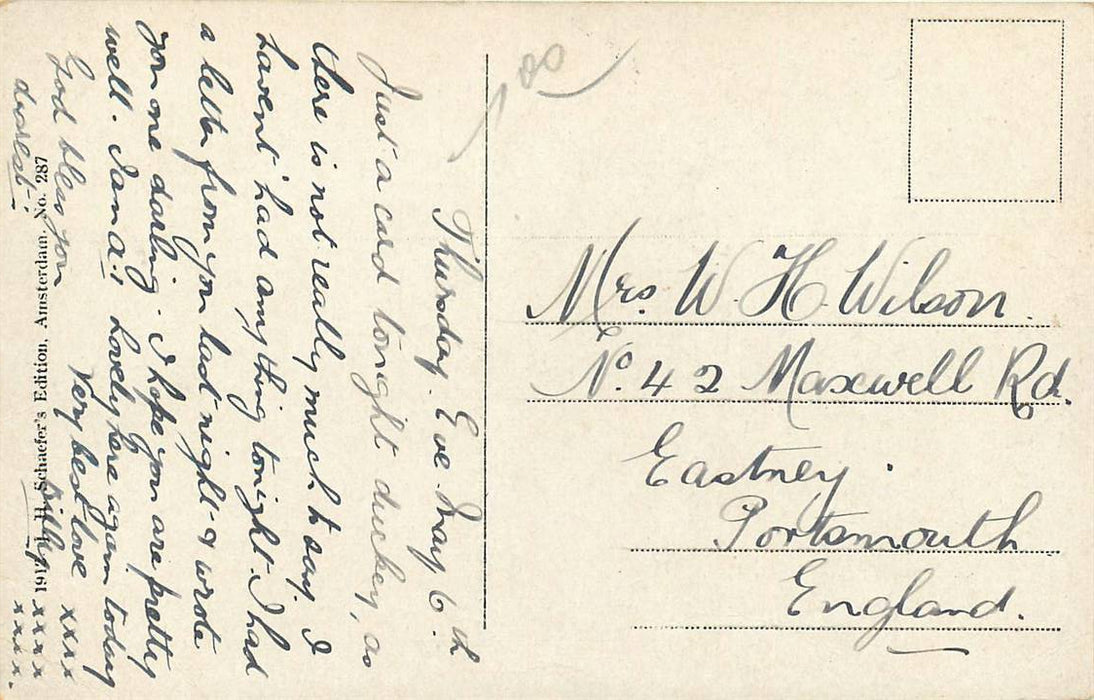 Thursday. Eve. May 6th.
Just a card tonight duckey, as
there is not really much to say. I
havent had anything tonight. I had
a letter from you last night & wrote
you one darling. I hope you are pretty
well. I am a1. Lovely here again today
God bless you
dearest.
Very best love xxx
Billy xxxx
xxxx.
1917 J. H. Schaefer's Edition, Amsterdam. No. 287
100
Mrs. W. H. Wilson.
No. 42 Maxwell Rd.
Eastney.
Portsmouth
England.